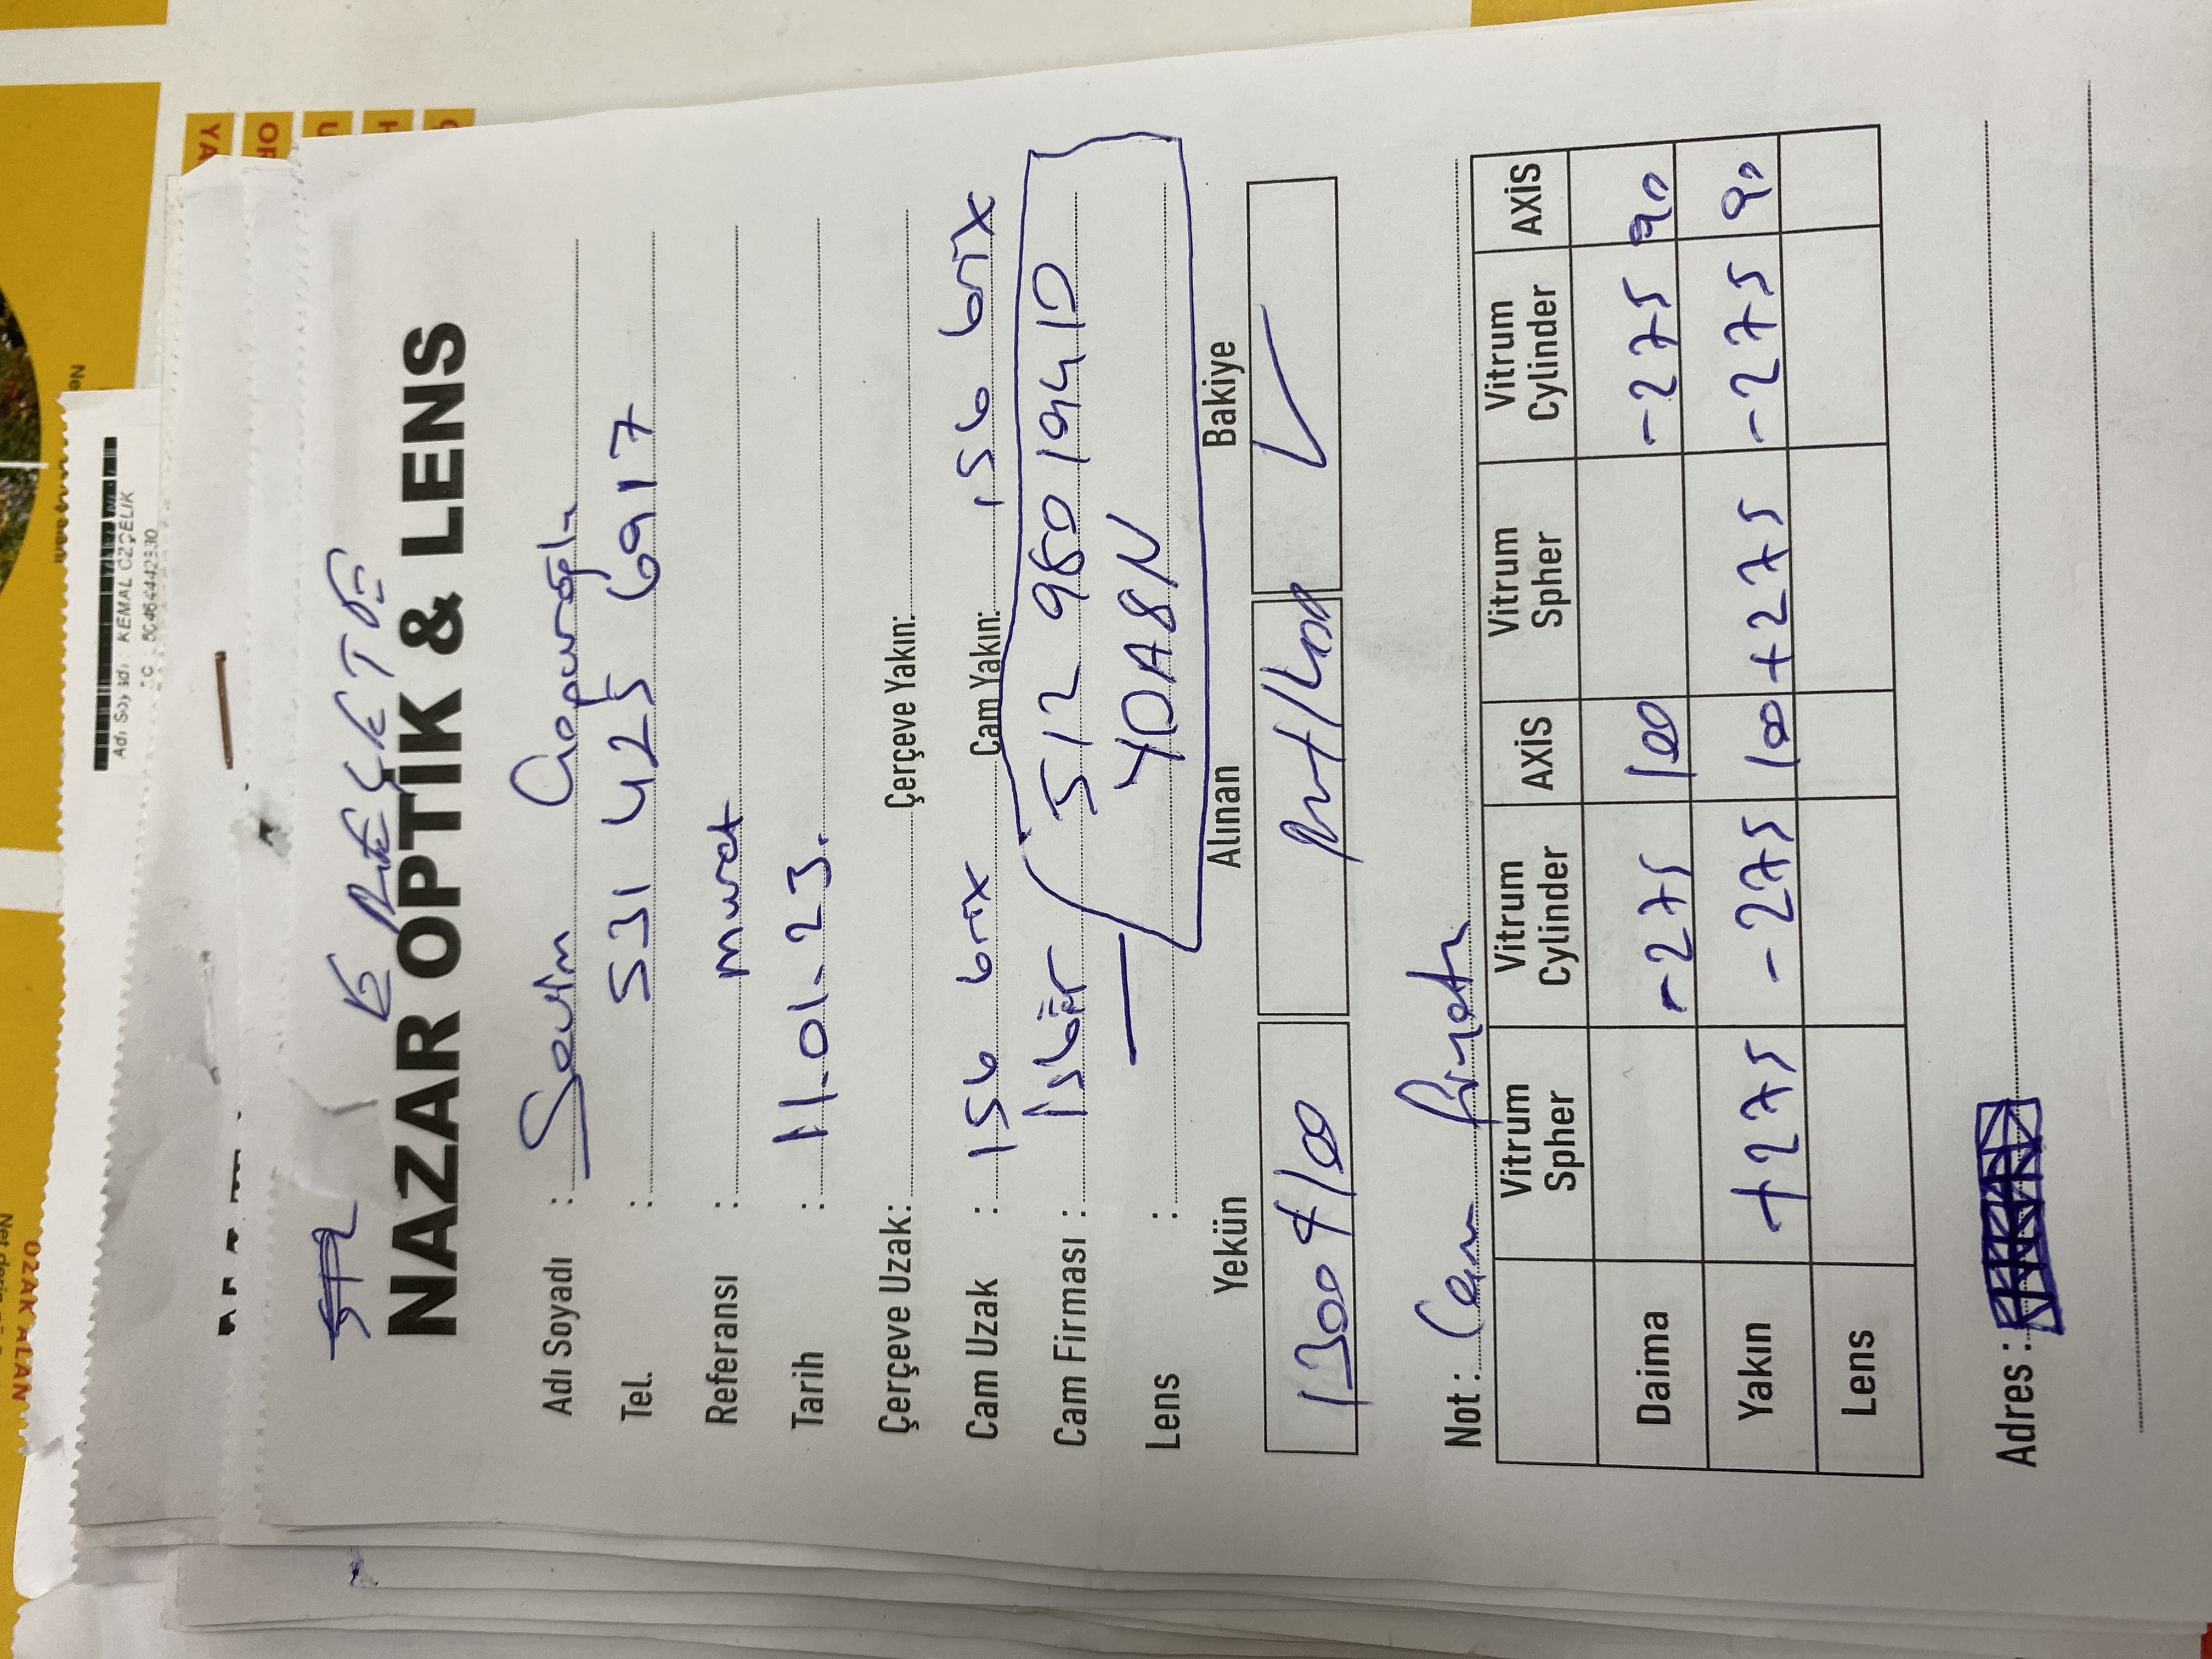 UZAK ALAN
Adı Soyadı : KEMAL ÖZÇELİK
E REÇETE
NAZAR OPTİK & LENS
Adı Soyadı : Sevim
Tel. : 531 425 6917
Referansı : Murat
Tarih : 11.01.23.
Çerçeve Uzak: Çerçeve Yakın:
Cam Uzak : 156 brix Cam Yakın: 156 brix
Cam Firması : İsbir 512 980 19410
Lens : YDA8N
Yekün Alınan Bakiye
Not : Cam
Vitrum Spher Vitrum Cylinder AXİS Vitrum Spher Vitrum Cylinder AXİS
Daima -275 100 -275 90
Yakın +275 -275 100 +275 -275 90
Lens
Adres :